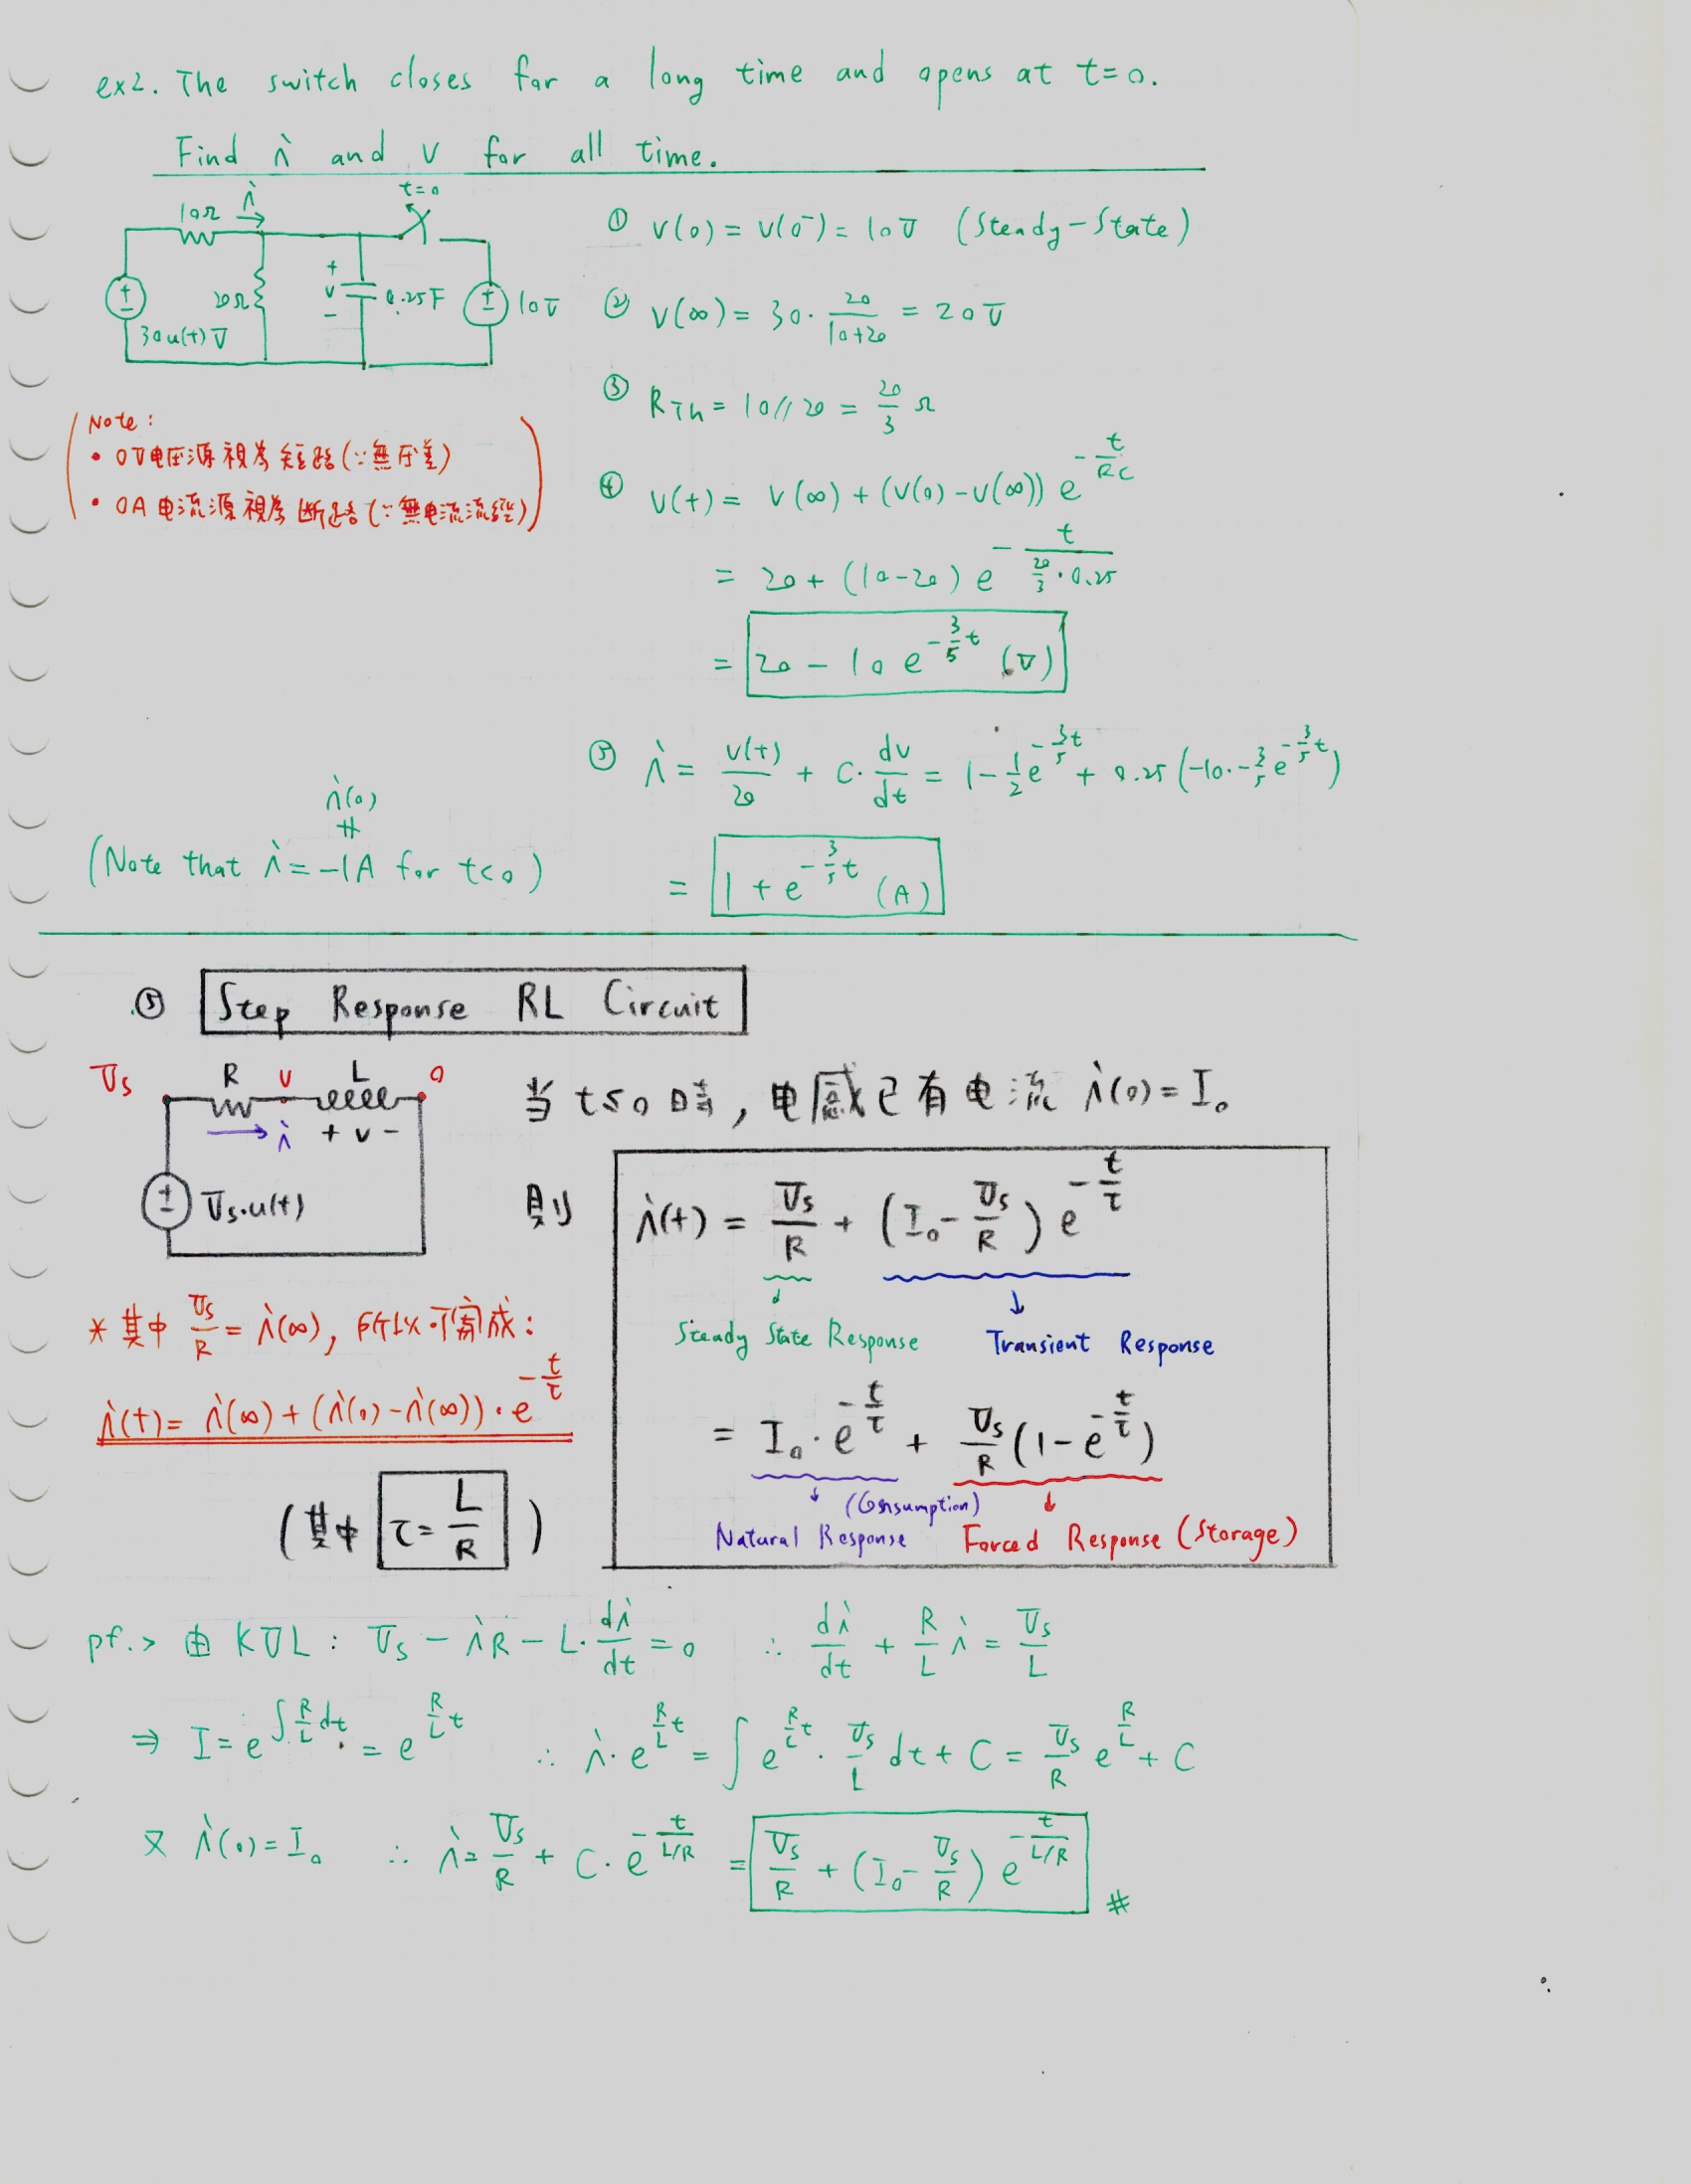 ex2. The switch closes for a long time and opens at t=0.
Find i and v for all time.
t=0
10Ω i
20Ω
+ v −
0.25F
10V
30u(t) V
① v(0) = v(0⁻) = 10V (Steady-State)
② v(∞) = 30 · 20/(10+20) = 20V
③ R_Th = 10//20 = 20/3 Ω
Note:
• 0V电压源視為短路(∵無压差)
• 0A电流源視為断路(∵無电流流經)
④ v(t) = v(∞) + (v(0) − v(∞)) e^(−t/RC)
= 20 + (10−20) e^(−t/(20/3 · 0.25))
= 20 − 10 e^(−3/5 t) (V)
⑤ i = v(t)/20 + C · dv/dt = 1 − 1/2 e^(−3/5 t) + 0.25 (−10 · −3/5 e^(−3/5 t))
= 1 + e^(−3/5 t) (A)
i(0)
(Note that i = −1A for t<0)
⑤ Step Response RL Circuit
Vs R v L 0
i + v −
Vs·u(t)
当 t≤0 時, 电感已有电流 i(0) = I₀
則 i(t) = Vs/R + (I₀ − Vs/R) e^(−t/τ)
Steady State Response Transient Response
= I₀ · e^(−t/τ) + Vs/R (1 − e^(−t/τ))
(Consumption)
Natural Response Forced Response (Storage)
* 其中 Vs/R = i(∞), 所以可寫成:
i(t) = i(∞) + (i(0) − i(∞)) · e^(−t/τ)
(其中 τ = L/R)
pf.> 由 KVL : Vs − iR − L · di/dt = 0 ∴ di/dt + R/L i = Vs/L
⇒ I = e^(∫R/L dt) = e^(R/L t) ∴ i · e^(R/L t) = ∫ e^(R/L t) · Vs/L dt + C = Vs/R e^(R/L) + C
又 i(0) = I₀ ∴ i = Vs/R + C · e^(−t/(L/R)) = Vs/R + (I₀ − Vs/R) e^(−t/(L/R)) #